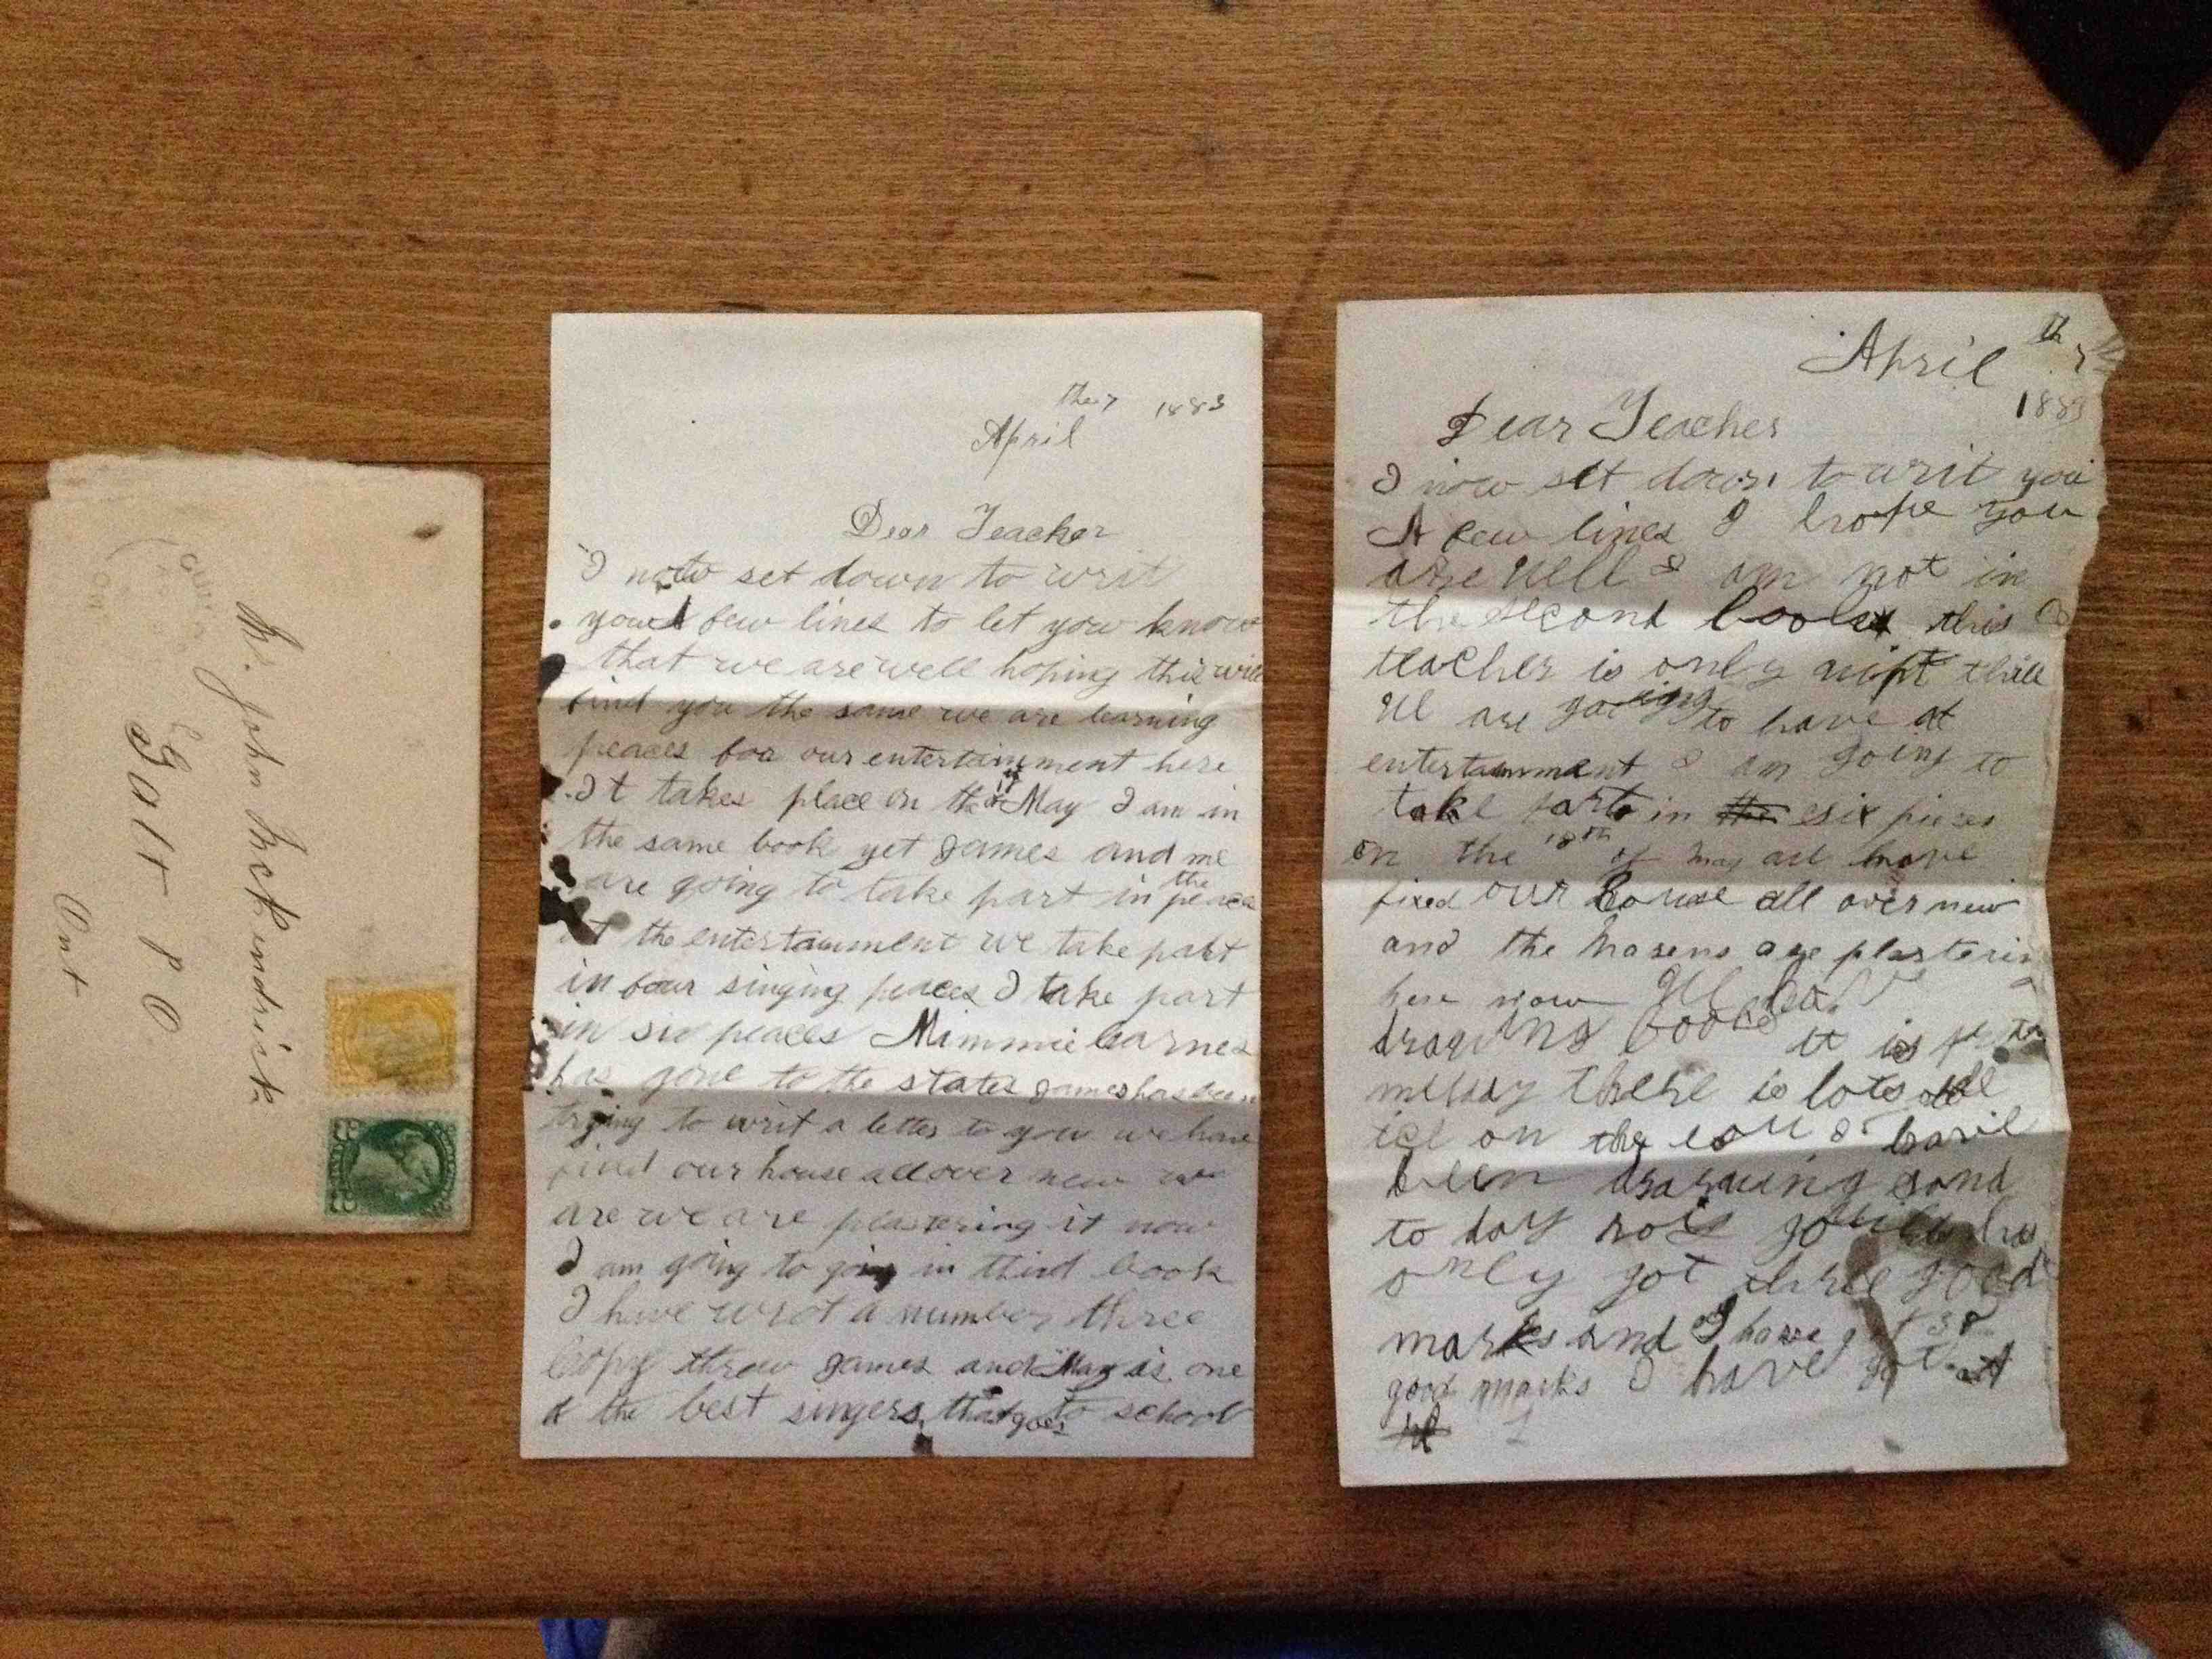 Mr. John McKendrick
Galt P O
Ont
April the 7 1883
Dear Teacher
I now set down to writ
you A few lines to let you know
that we are well hoping this will
find you the same we are learning
peaces for our entertainment here
It takes place on the May I am in
the same book yet James and me
are going to take part in the peace
at the entertainment we take part
in four singing peaces I take part
in six peaces Mimmie
has gone to the states James has been
trying to writ a letter to you we have
fixed our house all over new we
are we are plastering it now
I am going to going in third book
I have wrot a number three
copy threw James and May is one
of the best singers that goes to school
April th
1883
Dear Teacher
I now set down to writ you
A few lines I hope you
are well I am not in
the second book this
teacher is only
We are going to have at
entertainment I am going to
take part in the six pieces
on the 18th of May
fixed our house all over new
and the masens are plasterin
here now We have
drawing books it is
there is lots
ice on the I have
been drawing sand
to day
only got three good
marks and I have got 38
good marks I have got A